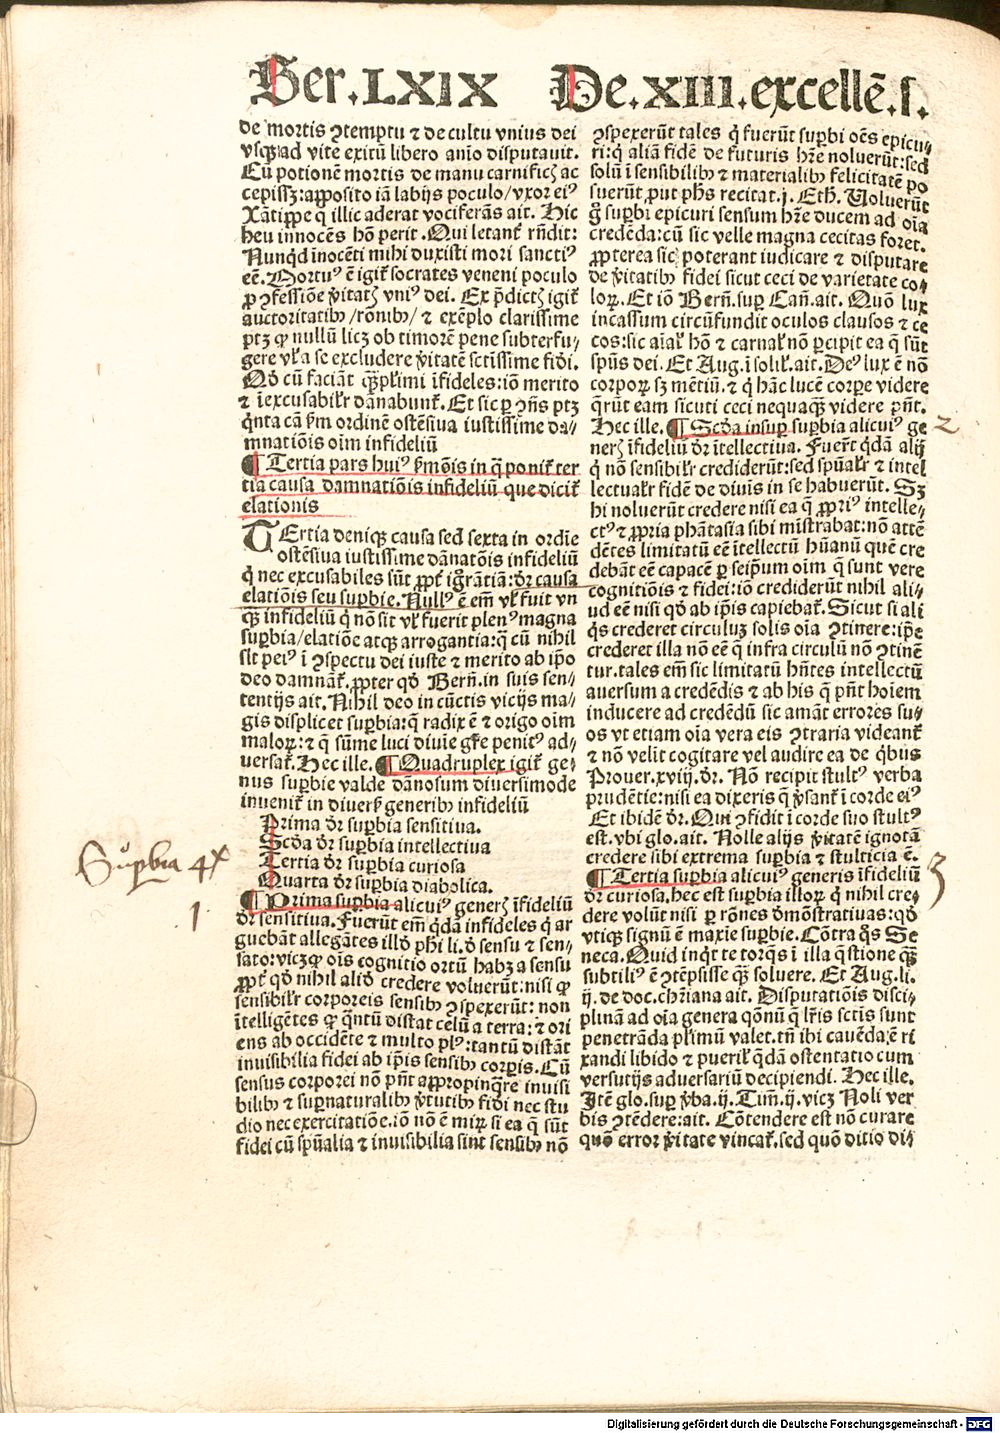 Ser.LXIX De.XIII.excellē.ſ.
de mortis ꝯtemptu ⁊ de cultu vnius dei
vsqꝫ ad vite exitū libero anīo disputauit.
Cū potionē mortis de manu carnificꝭ ac
cepissꝫ: apposito iā labijs poculo/vxor eiꝰ
Xātippe q̄ illic aderat vociferās ait. Hic
heu innocēs hō perit. Qui letant̄ rn̄dit:
Nunqd īnocēti mihi duxisti mori sanctiꝰ
eē. Mortuꝰ ē igit̄ socrates veneni poculo
ꝓ ꝯfessiōe v̄itatꝭ vniꝰ dei. Ex p̄dictꝭ igit̄
auctoritatibꝰ/rōnibꝰ/⁊ exēplo clarissime
ptꝫ ꝙ nullū licꝫ ob timorē pene subterfu-
gere vl̄a se excludere v̄itatē sctīssime fidi.
Qd̄ cū faciāt q̄ꝫplimi īfideles: iō merito
⁊ īexcusabilr̄ dānabunt̄. Et sic ꝑ ꝯn̄s ptꝫ
q̄nta cā ẜm ordinē ostēsiua iustissime da-
mnatiōis oīm infideliū
¶ Tertia pars huiꝰ ẜmōis in q̄ ponit̄ ter
tia causa damnatiōis infideliū que dicit̄
elationis
TErtia deniqꝫ causa sed sexta in ordīe
ostēsiua iustissime dānatōis infideliū
q̇ nec excusabiles sūt ꝓpt̄ ignorātiā: dr̄ causa
elatiōis seu supbie. Nullꝰ ē em̄ vl̄ fuit vn
qꝫ infideliū q̇ nō sit vl̄ fuerit plenꝰ magna
supbia/elatiōe atqꝫ arrogantia: q̄ cū nihil
sit peiꝰ ī ꝯspectu dei iuste ⁊ merito ab ip̄o
deo damnat̄. ꝓpter qd̄ Bern̄. in suis sen-
tentijs ait. Nihil deo in cūctis vicijs ma-
gis displicet supbia: q̄ radix ē ⁊ origo oīm
maloꝝ: ⁊ q̄ sūme luci diuīe gr̄e penitꝰ ad-
uersat̄. Hec ille. ¶ Quadruplex igit̄ ge-
nus supbie valde dānosum diuersimode
inuenit̄ in diuers̄ generibꝰ infideliū
Prima dr̄ supbia sensitiua.
Scd̄a dr̄ supbia intellectiua
Tertia dr̄ supbia curiosa
Quarta dr̄ supbia diabolica.
¶ Prima supbia alicuiꝰ generꝭ īfideliū
dr̄ sensitiua. Fuerūt em̄ qdā infideles q̇ ar
guebāt allegātes illd̄ phi li. d̄ sensu ⁊ sen-
sato: vicꝫ ꝙ oīs cognitio ortū habꝫ a sensu
ꝓpt̄ qd̄ nihil aliō credere voluerūt: nisi ꝙ
sensibilr̄ corporeis sensibꝰ ꝯspexerūt: non
ītelligētes ꝙ q̄ntū distat celū a terra: ⁊ ori
ens ab occidēte ⁊ multo plꝰ: tantū distāt
inuisibilia fidei ab ip̄is sensibꝰ corpis. Cū
sensus corporei nō pn̄t appropinq̄re inuisi
bilibꝰ ⁊ supnaturalibꝰ v̄tutibꝰ fidi nec stu
dio nec exercitatiōe. iō nō ē mirꝝ si ea q̄ sūt
fidei cū sp̄ualia ⁊ inuisibilia sint sensibꝰ nō
ꝯspexerūt tales q̇ fuerūt supbi oēs epicu-
ri: q̇ aliā fidē de futuris hr̄e noluerūt: sed
solū ī sensibilibꝰ ⁊ materialibꝰ felicitatē po
suerūt, put phs recitat. j. Eth. Voluerūt
g̊ supbi epicuri sensum hr̄e ducem ad oīa
credēda: cū sic velle magna cecitas foret.
ꝓpterea sic poterant iudicare ⁊ disputare
de v̄itatibꝰ fidei sicut ceci de varietate co-
loꝝ. Et iō Bern̄. sup Can̄. ait. Quō lux
incassum circūfundit oculos clausos ⁊ ce
cos: sic aīal̄ hō ⁊ carnal̄ nō pcipit ea q̄ sūt
sp̄us dei. Et Aug. ī solil̄. ait. Deꝰ lux ē nō
corporꝝ sꝫ mētiū. ⁊ q̇ hāc lucē corpe videre
q̄rūt eam sicuti ceci nequaqꝫ videre pn̄t.
Hec ille. ¶ Scd̄a insup supbia alicuiꝰ ge
nerꝭ īfideliū dr̄ ītellectiua. Fuer̄t qdā alij
q̇ nō sensibilr̄ crediderūt: sed sp̄ualr̄ ⁊ intel
lectualr̄ fidē de diuīs in se habuerūt. Sꝫ
hi noluerūt credere nisi ea q̄ ꝓpriꝰ intelle-
ctꝰ ⁊ ꝓpria phātasia sibi mīstrabat: nō attē
dētes limitatū eē ītellectū hūanū quē cre
debāt eē capacē ꝑ seipm̄ oīm q̄ sunt vere
cognitiōis ⁊ fidei: iō crediderūt nihil ali-
ud eē nisi qd̄ ab ip̄is capiebat̄. Sicut si ali
q̇s crederet circuluꝫ solis oīa ꝯtinere: ip̄e
crederet illa nō eē q̄ infra circulū nō ꝯtinē
tur. tales em̄ sic limitatū hn̄tes intellectū
auersum a credēdis ⁊ ab his q̄ pn̄t hoīem
inducere ad credēdū sic amāt errores su-
os vt etiam oīa vera eis ꝯtraria videant̄
⁊ nō velit cogitare vel audire ea de q̇bus
Prouer. xviij. dr̄. Nō recipit stultꝰ verba
prudētie: nisi ea dixeris q̄ v̄sant̄ ī corde eiꝰ
Et ibidē dr̄. Qui ꝯfidit ī corde suo stultꝰ
est. vbi glo. ait. Nolle alijs v̄itatē ignotā
credere sibi extrema supbia ⁊ stulticia ē.
¶ Tertia supbia alicuiꝰ generis īfideliū
dr̄ curiosa. hec est supbia illoꝝ q̇ nihil cre-
dere volūt nisi ꝑ rōnes dmōstratiuas: qd̄
vtiqꝫ signū ē maxīe supbie. Cōtra q̇s Se
neca. Quid inqt te torqꝭ ī illa q̄stione qꝫ
subtiliꝰ ē ꝯtēpsisse qꝫ soluere. Et Aug. li.
ij. de doc. chr̄iana ait. Disputatiōis disci-
plinā ad oīa genera qōnū q̄ lr̄is sctīs sunt
penetrāda plimū valet. tn̄ ibi cauēda ē ri
xandi libido ⁊ pueril̄ qdā ostentatio cum
versutijs aduersariū decipiendi. Hec ille.
Itē glo. sup v̄ba. ij. Tim̄. ij. vicꝫ Noli ver
bis ꝯtēdere: ait. Cōtendere est nō curare
quō error v̄itate vincat̄. sed quō ditio di-
Supbia 4x
1
2
3
Digitalisierung gefördert durch die Deutsche Forschungsgemeinschaft - DFG